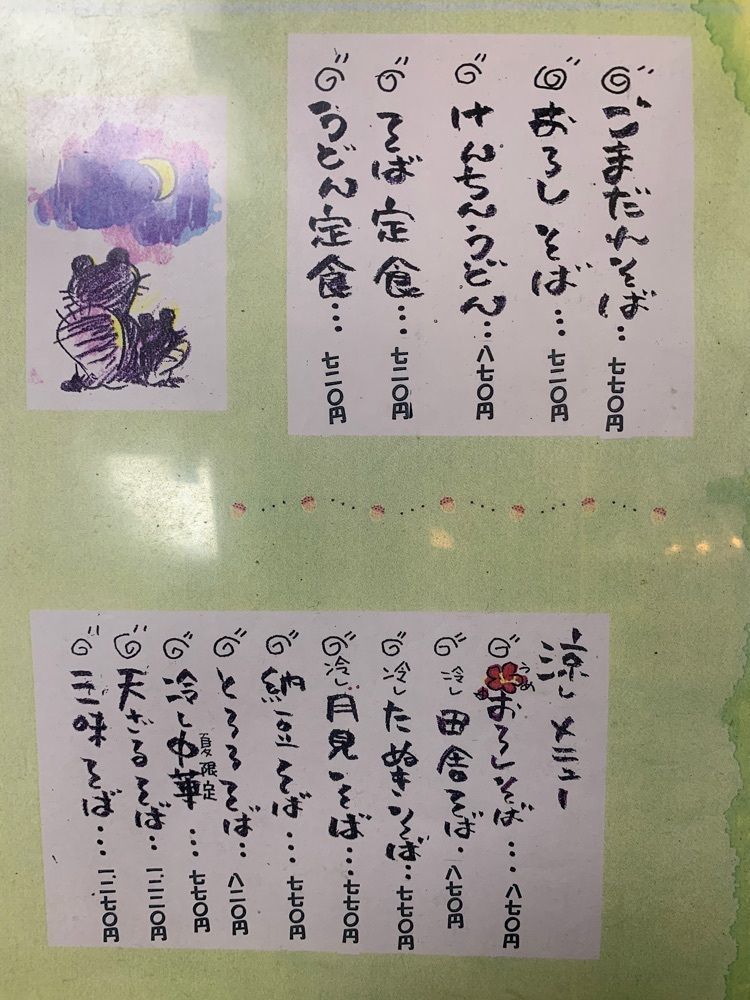 ごまだれそば…七七〇円
おろしそば…七二〇円
けんちんうどん…八七〇円
そば定食…七二〇円
うどん定食…七二〇円
涼しメニュー
うめおろしそば…八七〇円
冷し田舎そば…八七〇円
冷したぬきそば…七七〇円
冷し月見そば…七七〇円
納豆そば…七七〇円
とろろそば…八二〇円
冷し中華 夏限定…七七〇円
天ざるそば…一、二二〇円
三味そば…一、二七〇円